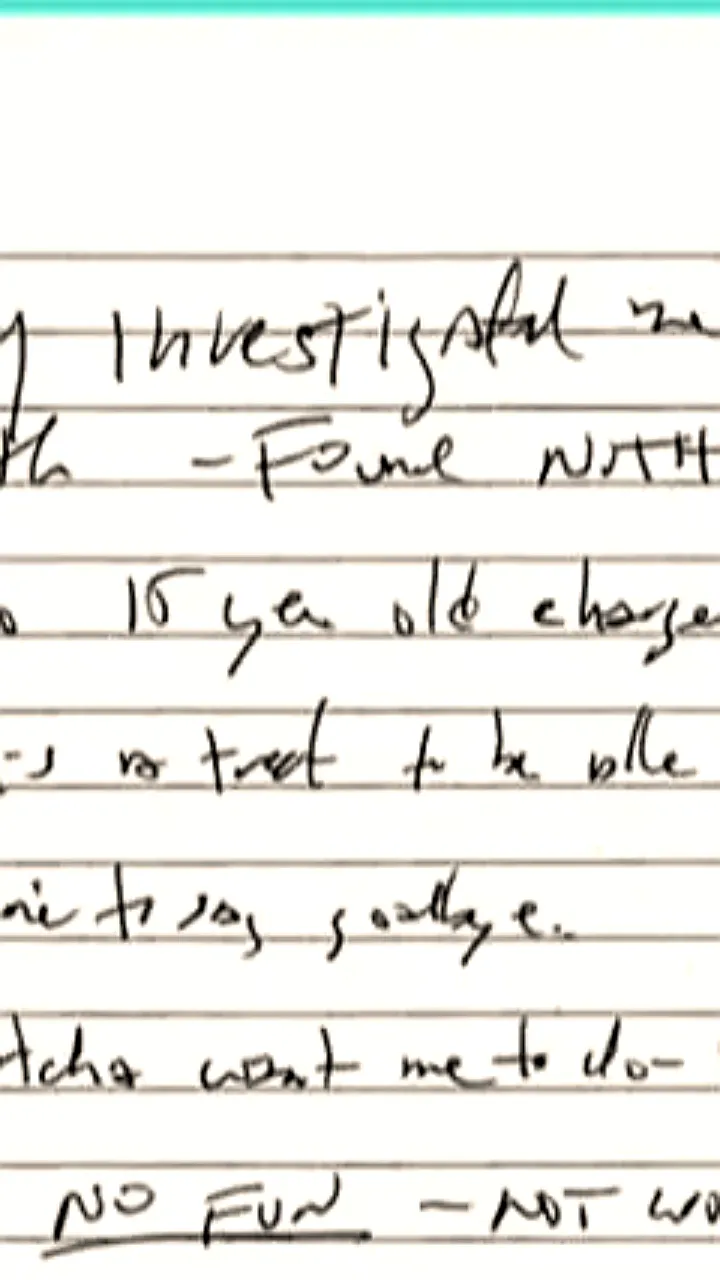 y investigated me
th - Found NOTH
o 15 year old charge
is a treat to be able
me to say goodbye.
tcha want me to do -
NO FUN - NOT WO